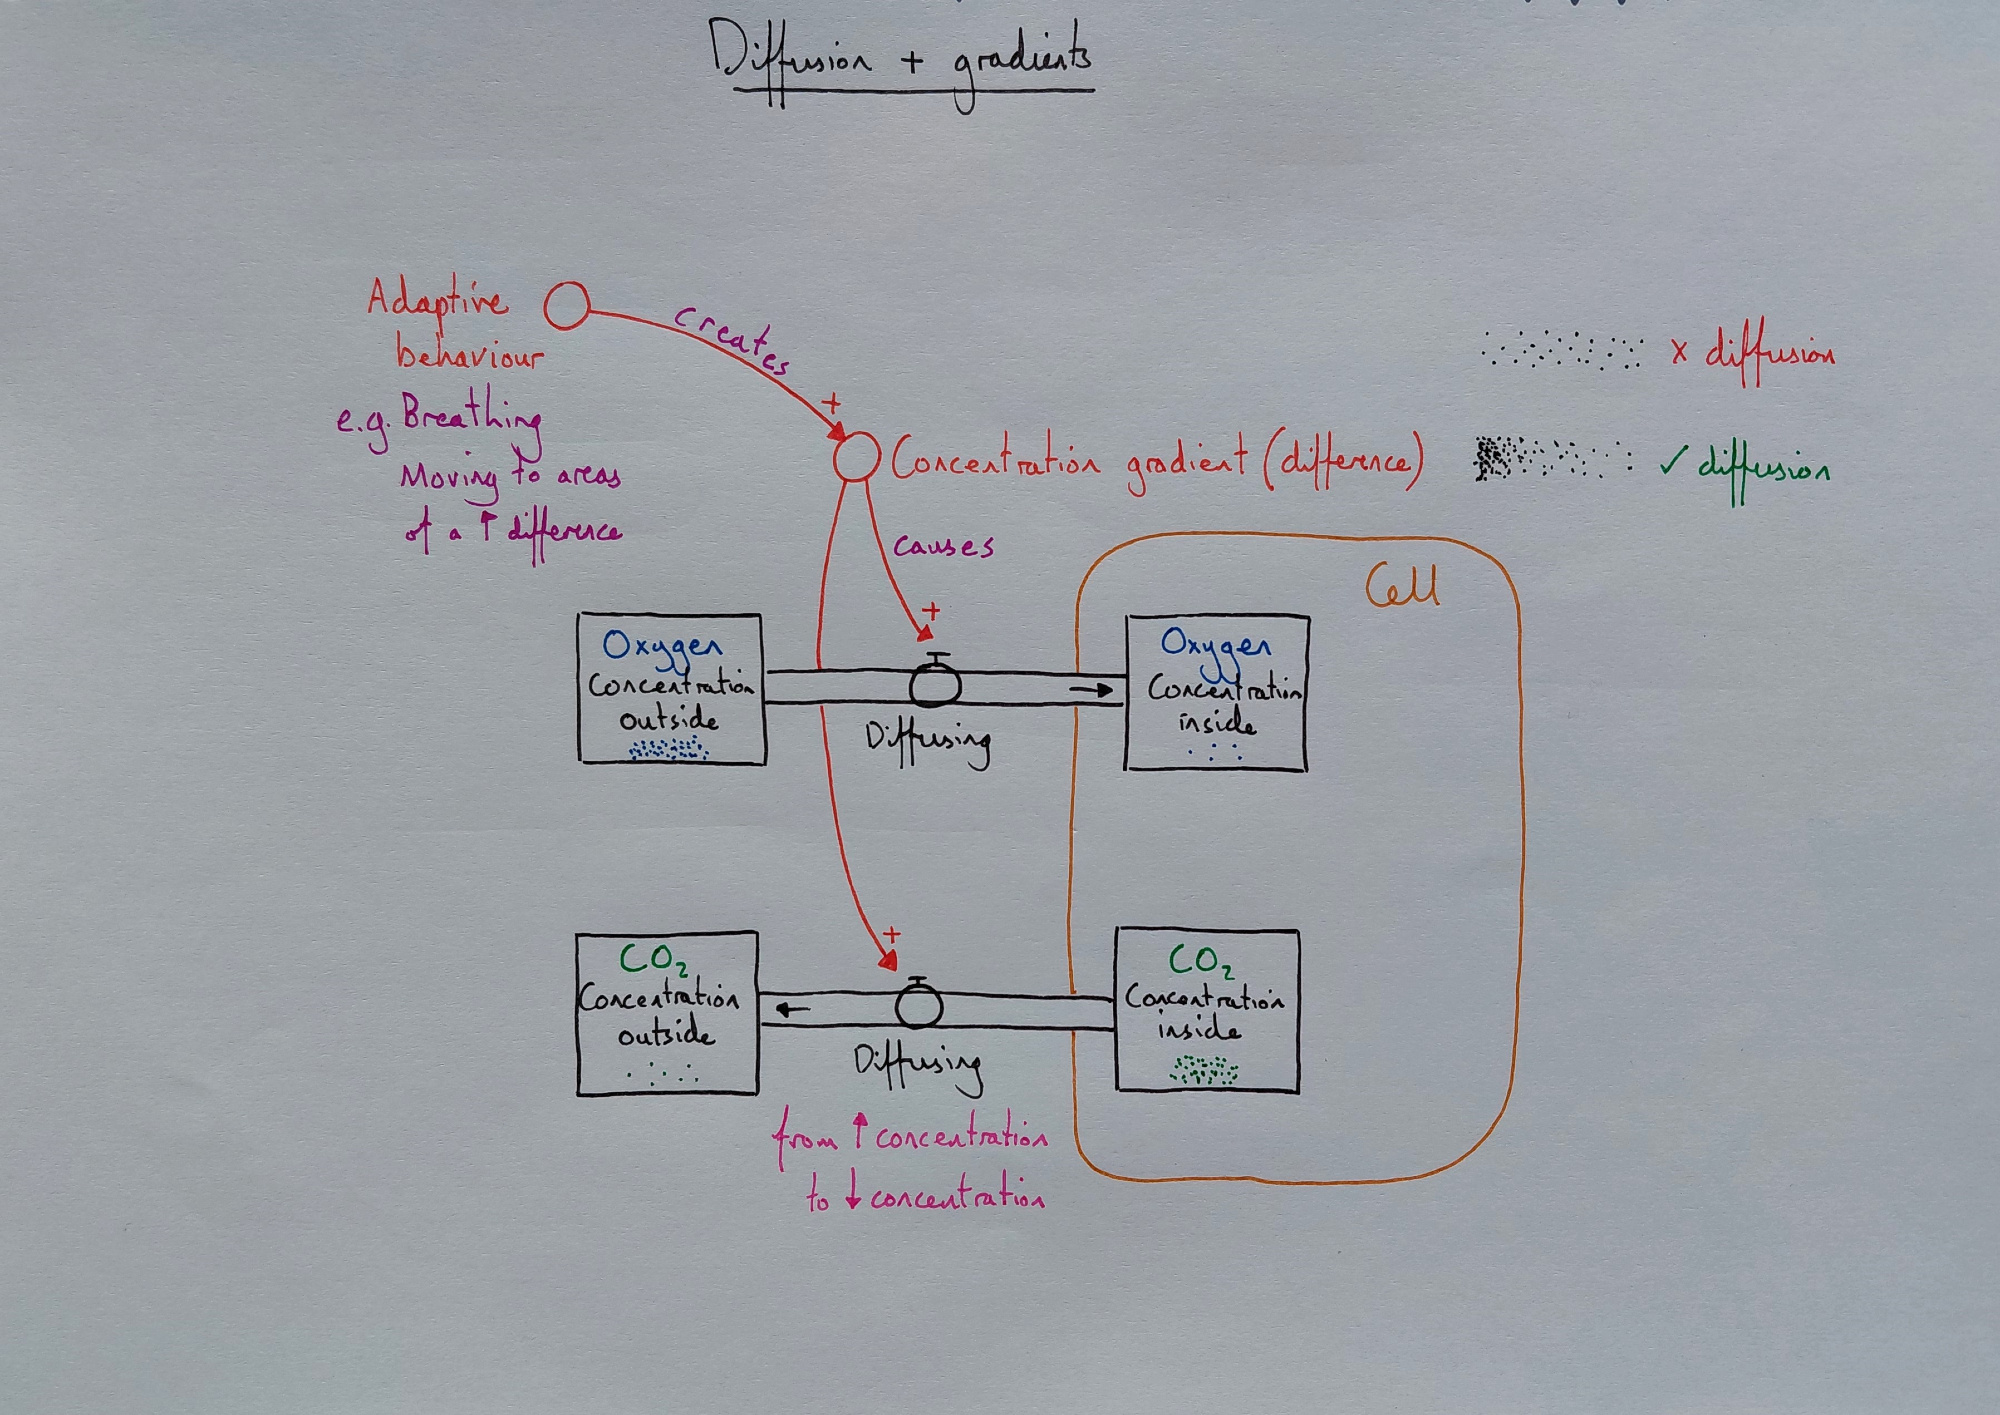 Diffusion + gradients
Adaptive
behaviour
e.g. Breathing
Moving to areas
of a ↑ difference
creates
+
Concentration gradient (difference)
x diffusion
✓ diffusion
causes
+
Cell
Oxygen
Concentration
outside
Diffusing
Oxygen
Concentration
inside
+
CO₂
Concentration
outside
Diffusing
from ↑ concentration
to ↓ concentration
CO₂
Concentration
inside